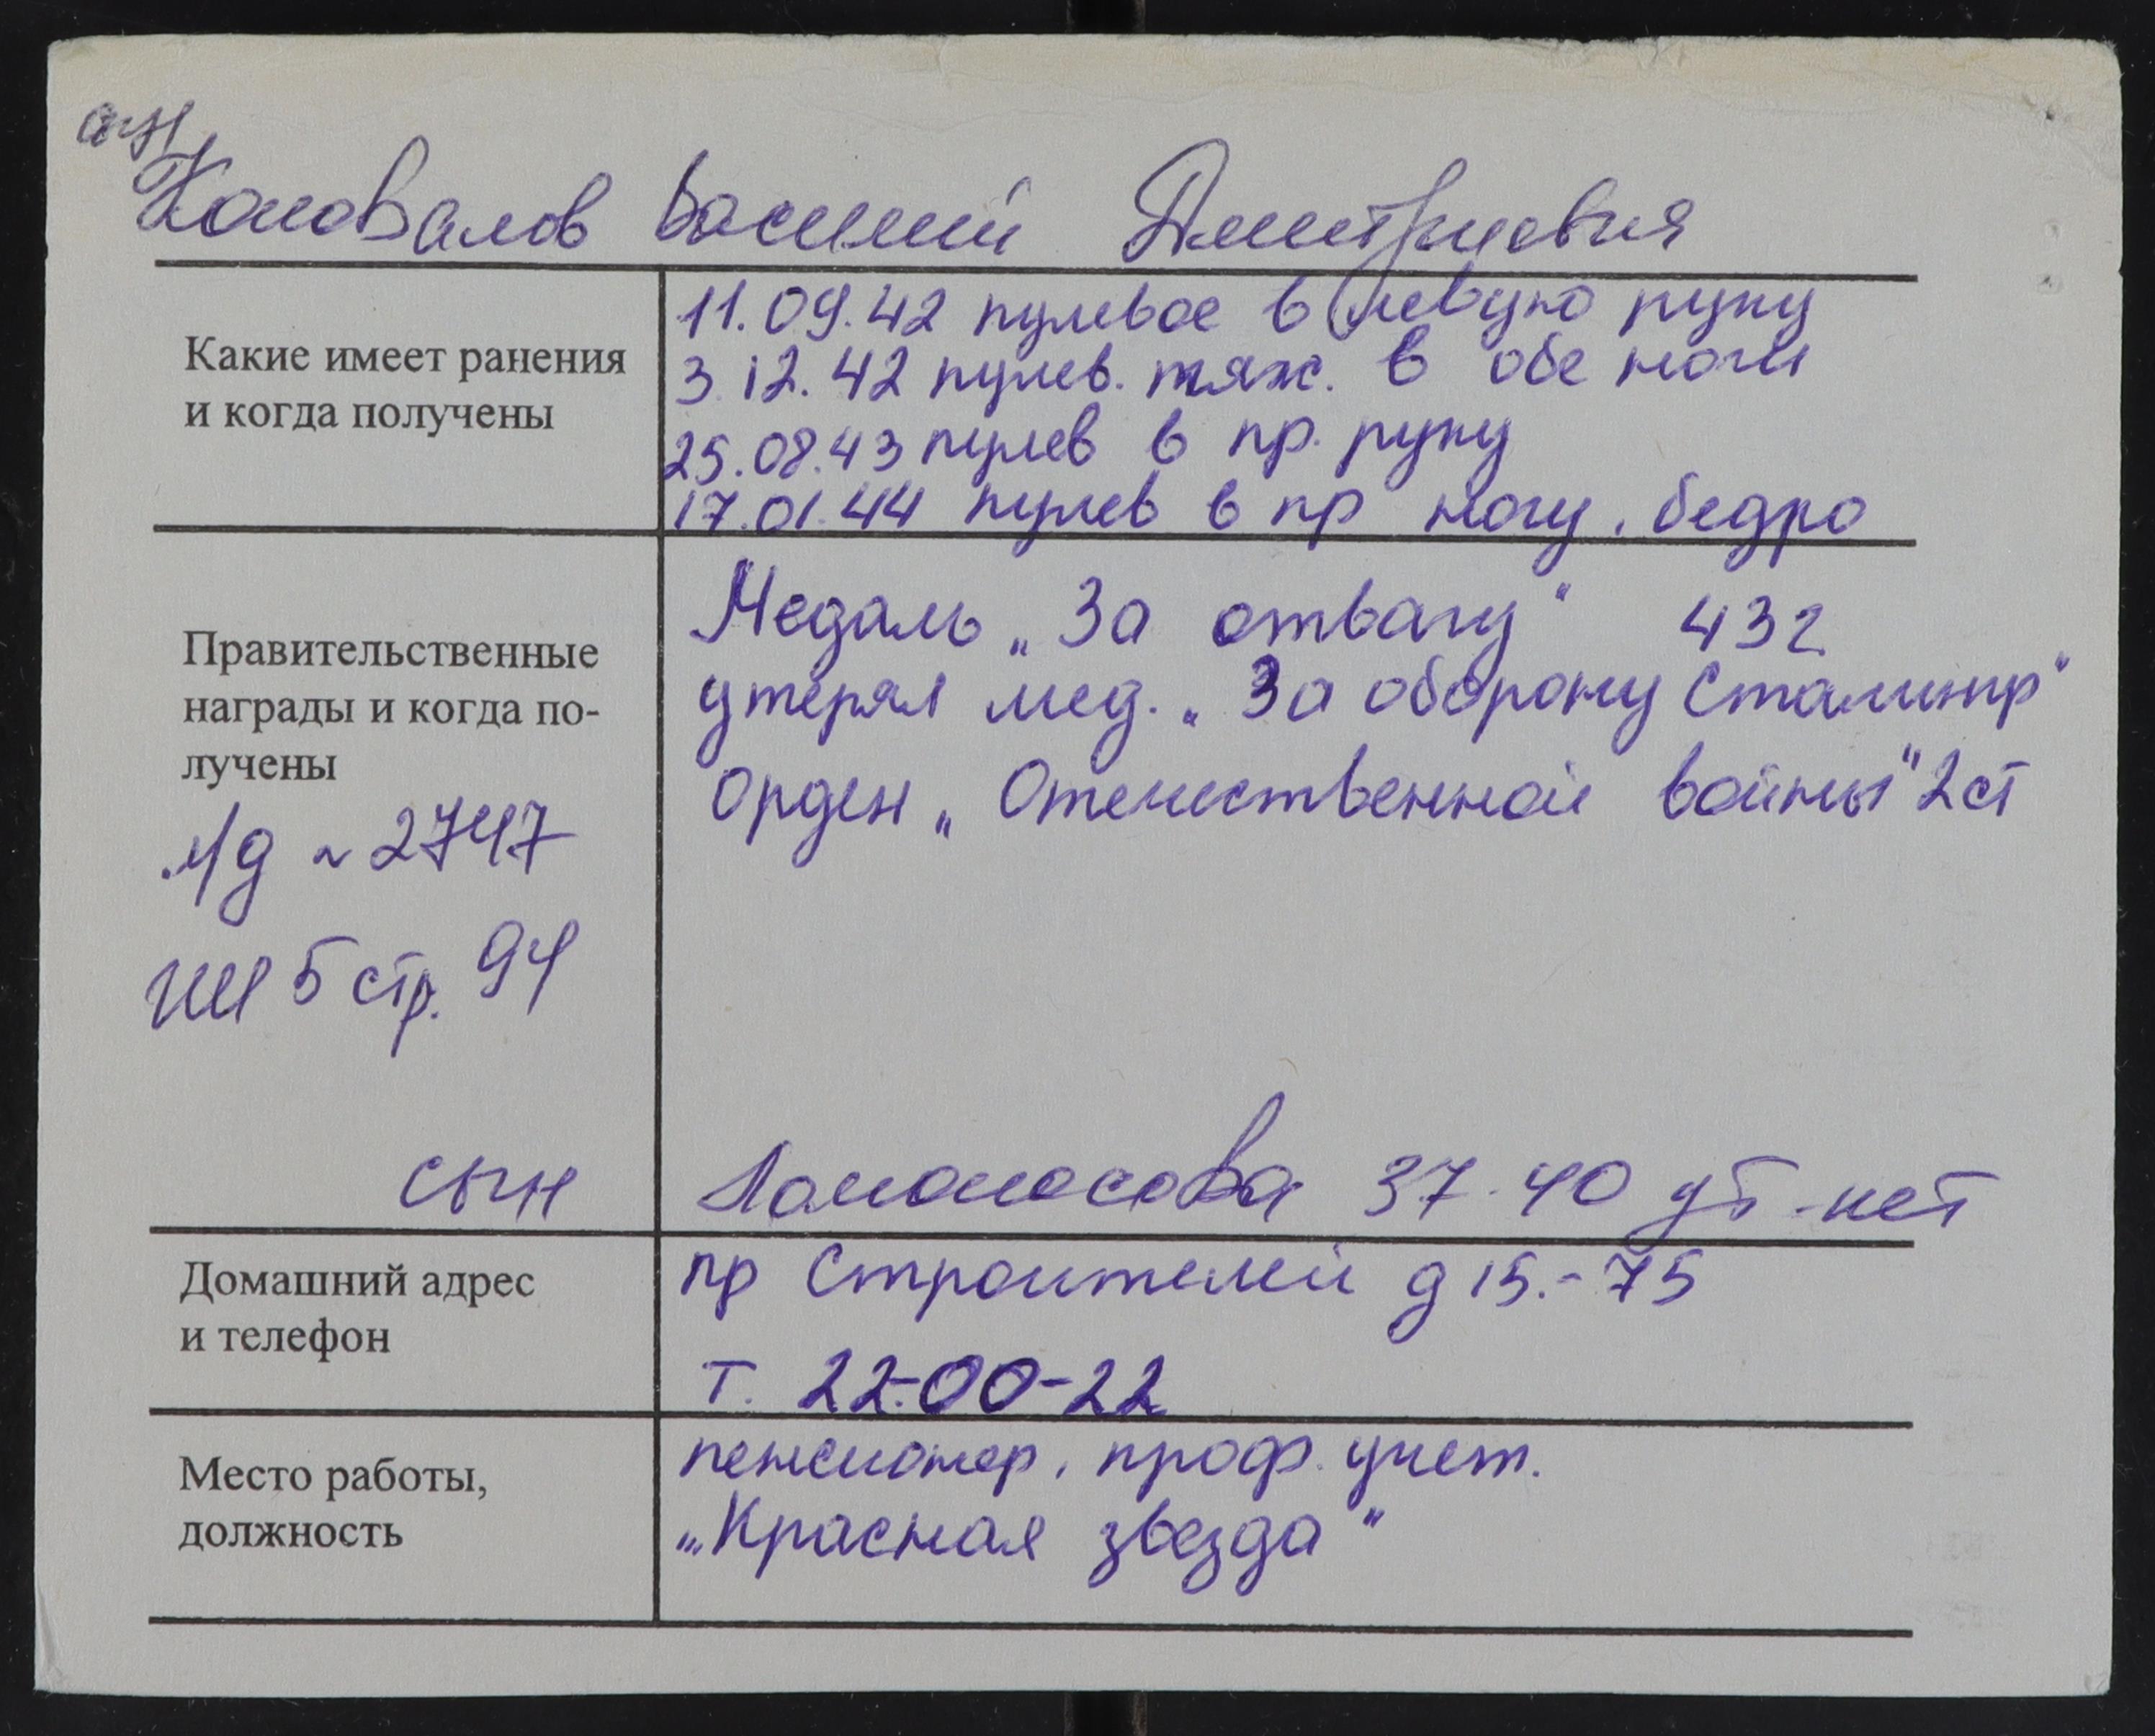 Коновалов Василий Дмитриевич
Какие имеет ранения
и когда получены
11.09.42 пулевое в левую руку
3.12.42 пулев. тяж. в обе ноги
25.08.43 пулев в пр. руку
17.01.44 пулев в пр ногу, бедро
Правительственные
награды и когда по-
лучены
м/д ~ 2747
5 стр. 94
Медаль „За отвагу" 43г
утерял мед. „За оборону Сталингр"
Орден „Отечественной войны" 2ст
сын Ломоносова 37-40 уб-нет
Домашний адрес
и телефон
пр Строителей д 15.-75
т. 22-00-22
Место работы,
должность
пенсионер, проф. учет.
„Красная звезда"